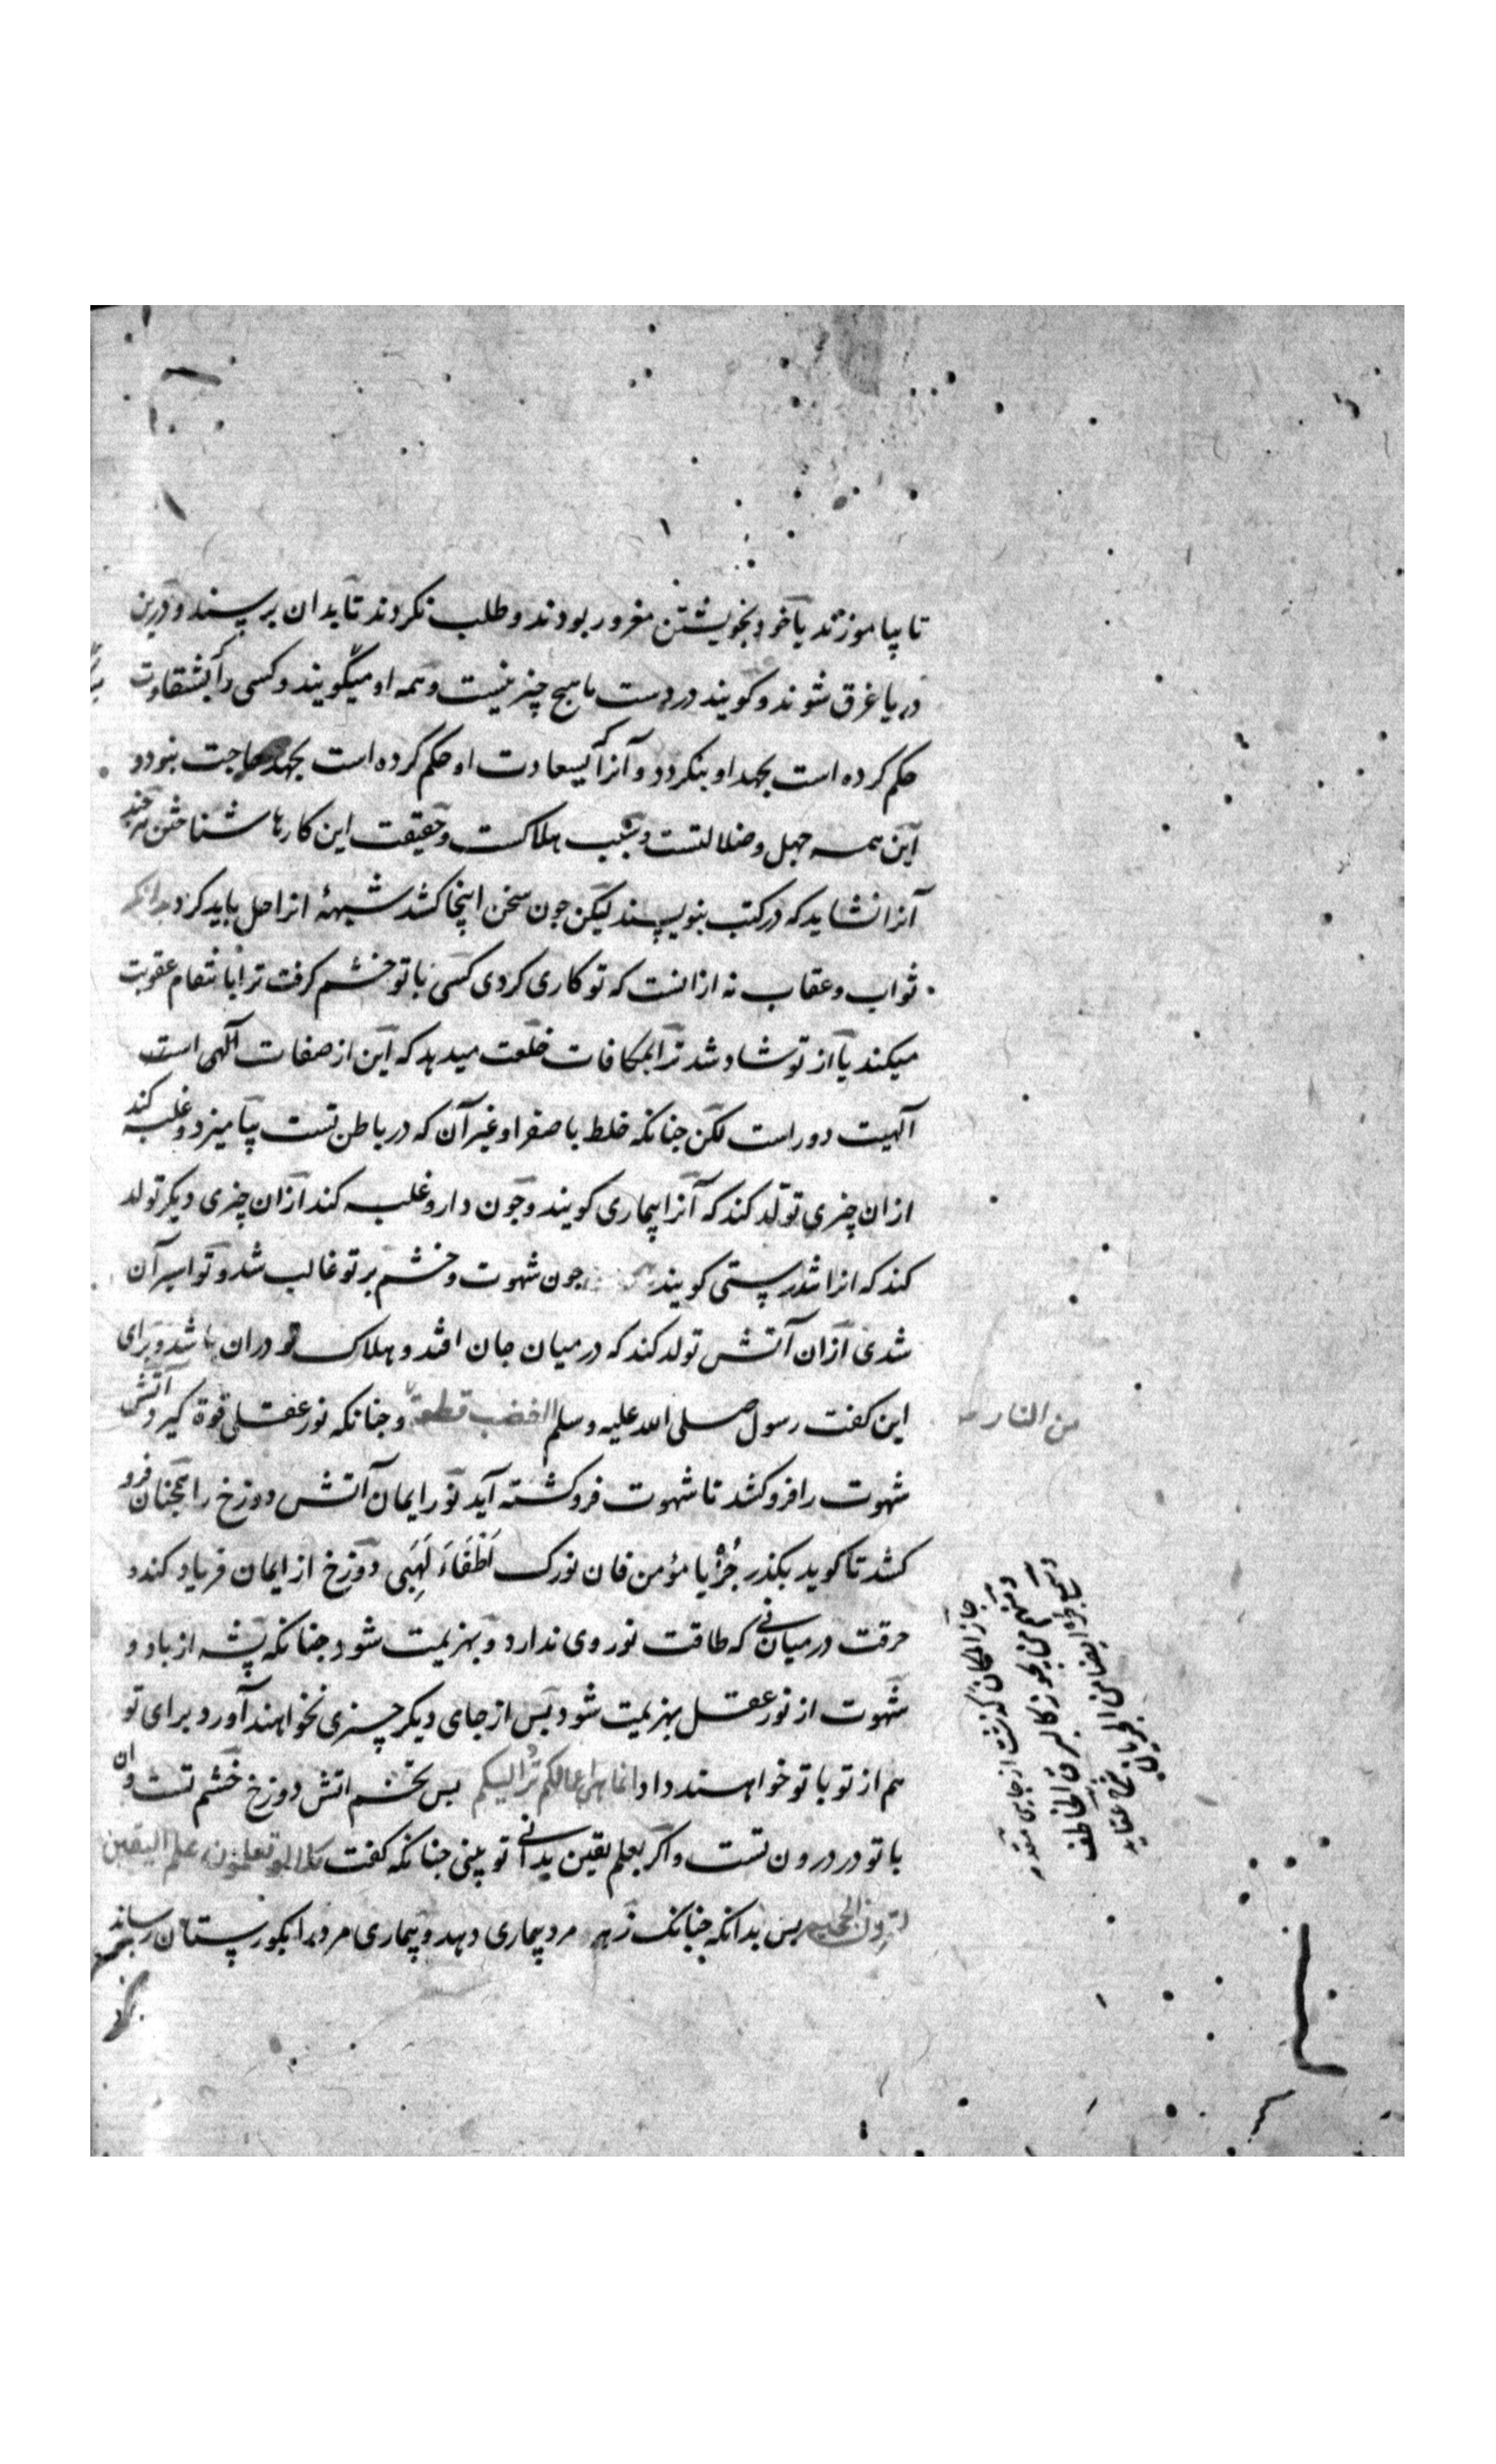 تا بیاموزند یا خود بخویشتن مغرور بودند و طلب نکردند تا بدان برسند و درین
دریا غرق شوند و کویند در دست ما هیچ چیز نیست و همه او میگویند و کسی را که بشقاوت
حکم کرده است بجهد او بنکردد و آنرا که بسعادت او حکم کرده است بجهد حاجت بنود و
این همه جهل و ضلالتست و سبب هلاکست و حقیقت این کارها شناختن هر چند
آنرا نشاید که در کتب بنویسند لیکن جون سخن اینجا کشد شبههٔ انرا حل باید کرد بدانکه
ثواب و عقاب نه ازانست که تو کاری کردی کسی با تو خشم کرفت ترا بانتقام عقوبت
میکند یا از تو شاد شد ترا بمکافات خلعت میدهد که این از صفات آلهی است
آلهیت دور است لکن جنانکه خلط یا صفرا و غیر آن که در باطن تست بیامیزد و غلبه کند
ازان چیزی تولّد کند که آنرا بیماری کویند و جون دارو غلبه کند ازان چیزی دیکر تولد
کند که انرا تندرستی کویند جون شهوت و خشم بر تو غالب شد و تو اسیر آن
شدی ازان آتش تولد کند که در میان جان افتد و هلاک تو دران باشد و برای
این کفت رسول صلی الله علیه و سلم الغضب قطعة و جنانکه نور عقلی قوة کیرد و آتش
من النار
شهوت را فرو کشد تا شهوت فرو کشته آید نور ایمان آتش دوزخ را همجنان فرو
کشد تا کوید بکذر جُز یا مؤمن فان نورک اَطْفَاءَ لَهَبی دوزخ از ایمان فریاد کند و
حرقت در میان نی که طاقت نور وی ندارد و بهزیمت شود جنانکه پشه از باد و
شهوت از نور عقل بهزیمت شود بس از جای دیکر چیزی نخواهند آورد برای تو
هم از تو با تو خواهند داد انما هی اعمالکم تُرد الیکم بس تخم اتش دوزخ خشم تست و ان
با تو در درون تست و اکر بعلم یقین بدانی تو بینی جنانکه کفت کلا لو تعلمون علم الیقین
لترون الجحیم بس بدانکه جنانک زهر مرد بیماری دهد و بیماری مرد را بکورستان رساند
جاز المکان کذشت از جایی